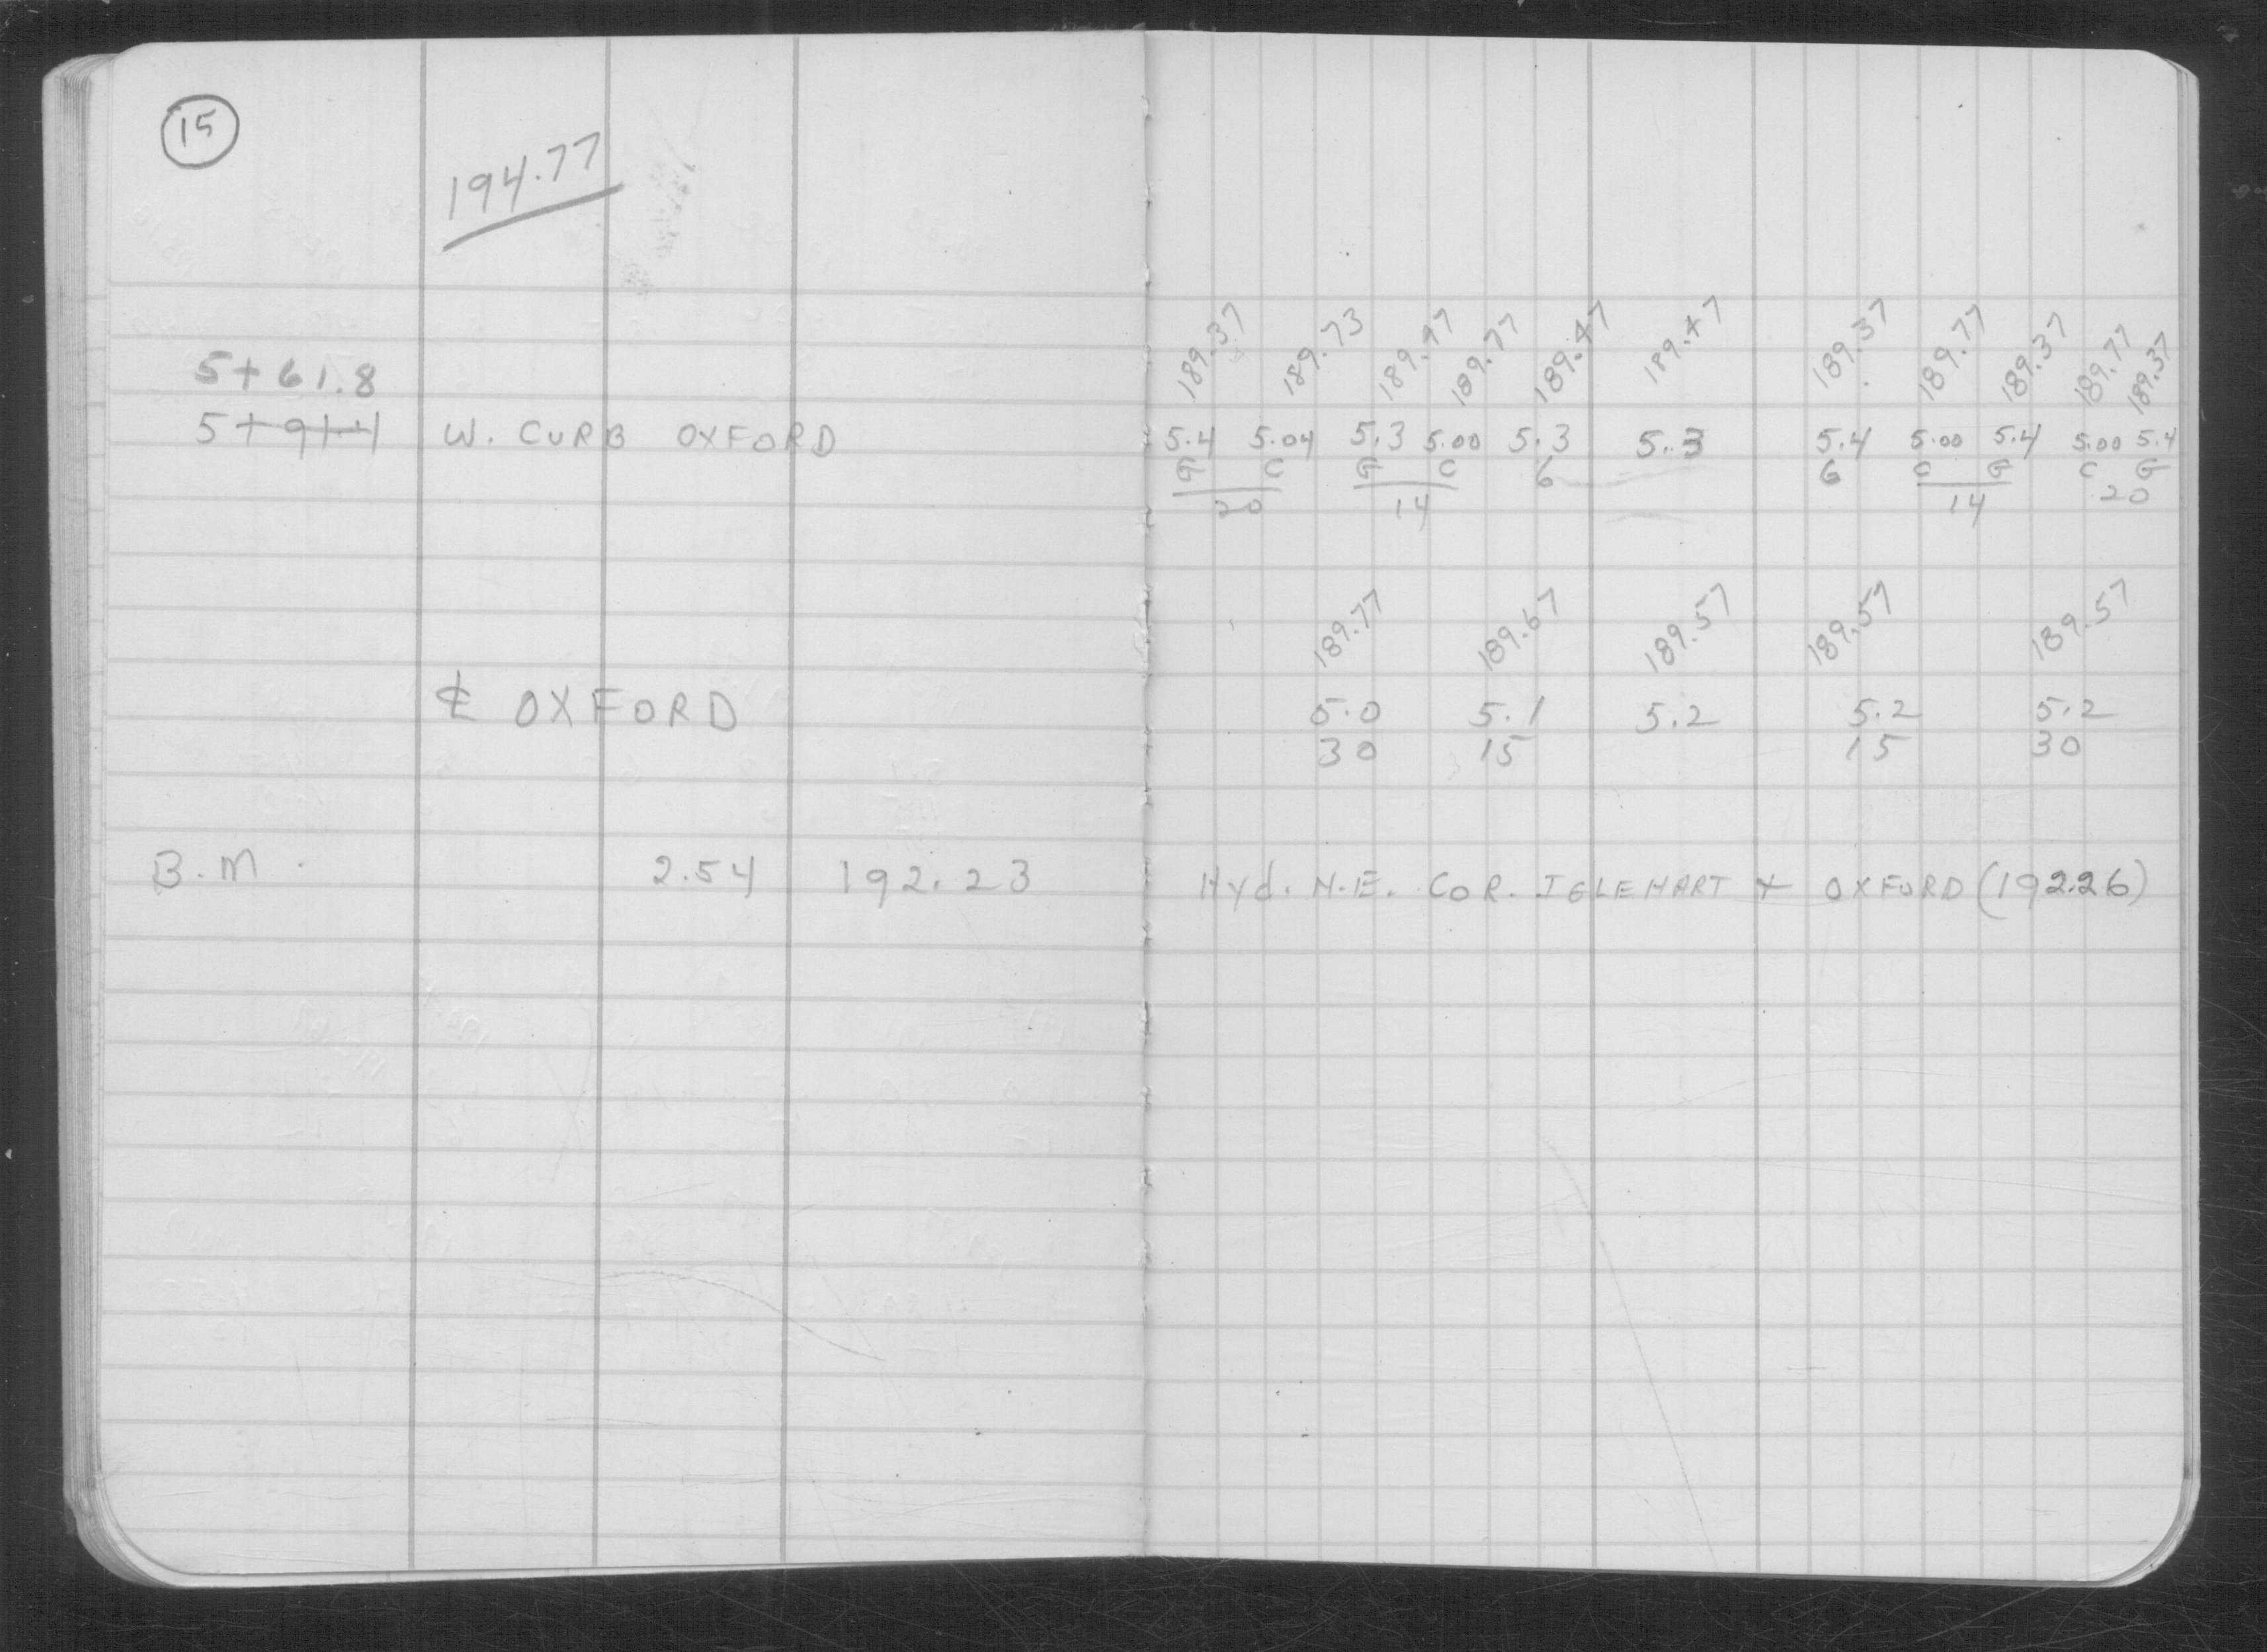 15
194.77
189.37 189.73 189.47 189.77 189.47 189.47 189.37 189.77 189.37 189.77 189.37
5+61.8
5+91.4 W. CURB OXFORD 5.4 5.04 5.3 5.00 5.3 5.3 5.4 5.00 5.4 5.00 5.4
G C G C 6 6 C G C G
20 14 14 20
189.77 189.67 189.57 189.57 189.57
℄ OXFORD 5.0 5.1 5.2 5.2 5.2
30 15 15 30
B.M. 2.54 192.23 Hyd. N.E. COR. IGLEHART + OXFORD (192.26)